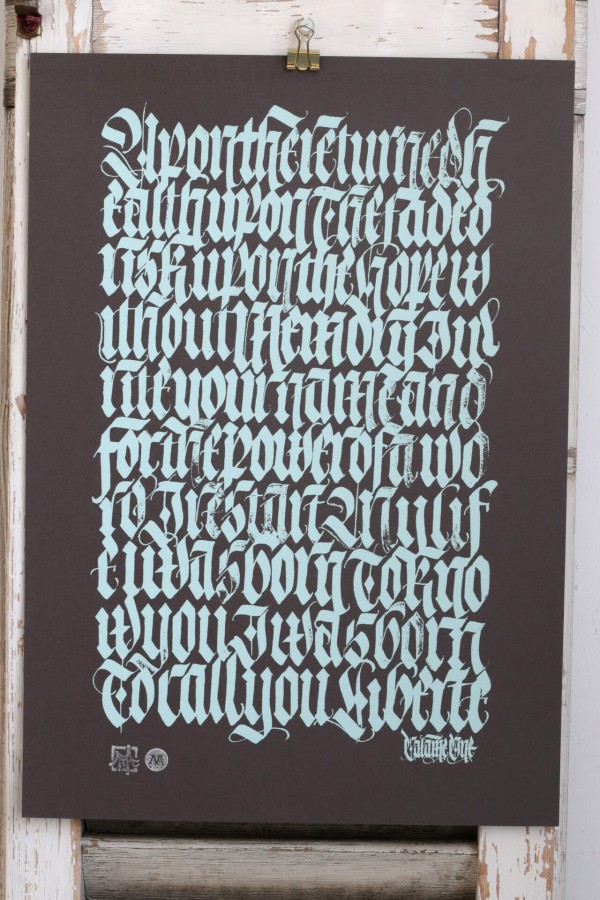 Upon the returned h
ealth upon The faded
risk upon the hope w
ithout Memory I w
rite your name and
for the power of a wo
rd I restart My lif
e I was born To Kno
w you I was born
To call you Liberte
Calame One